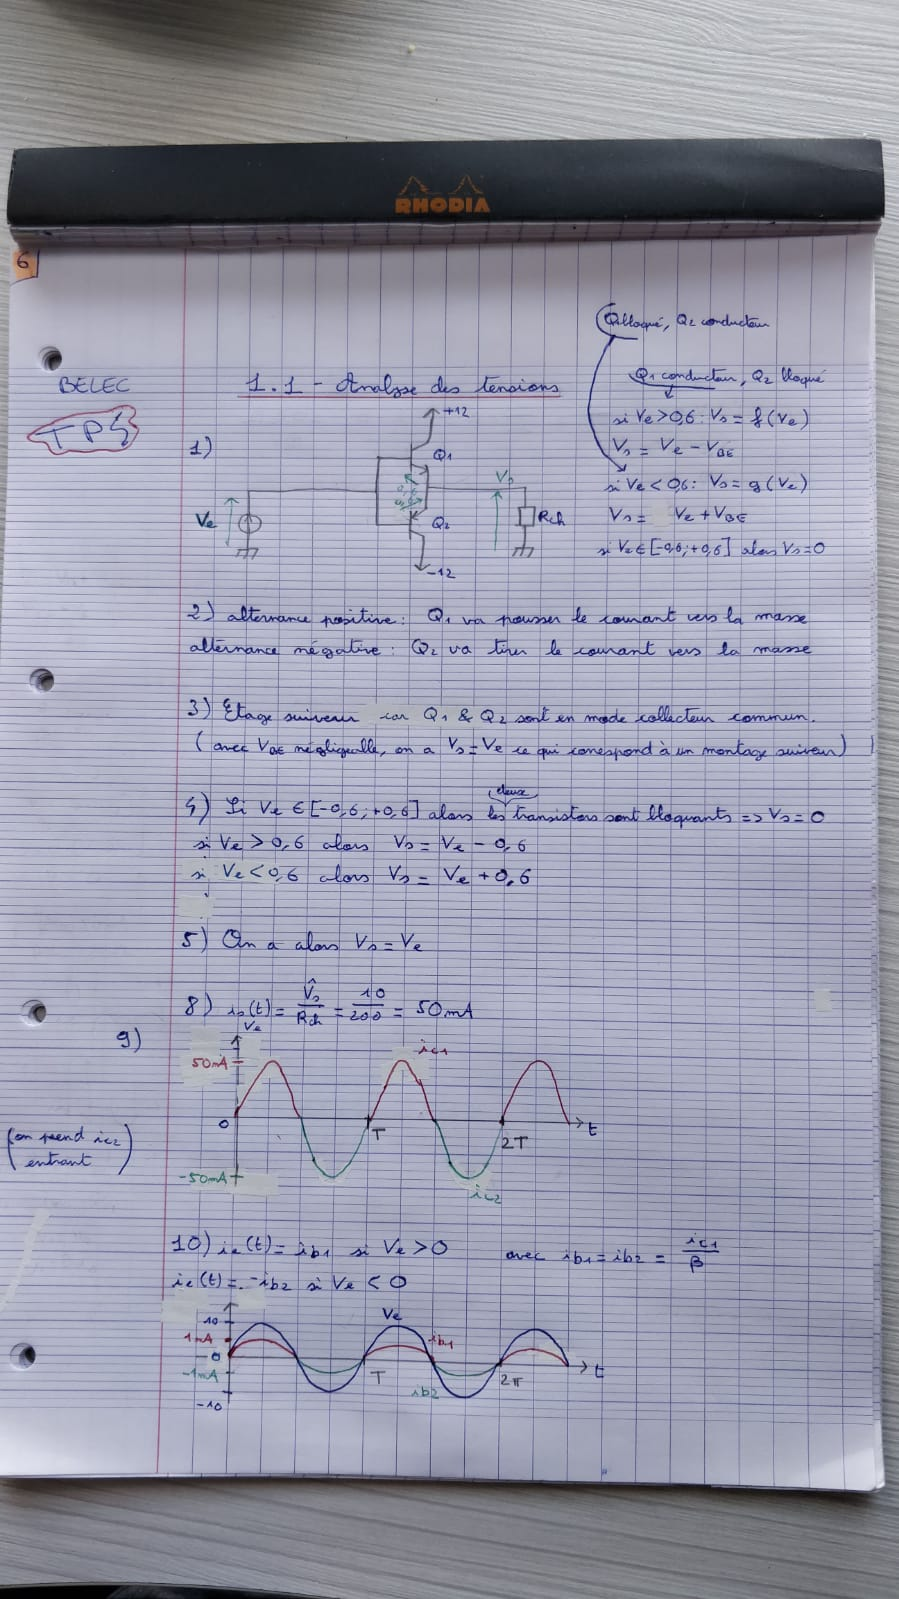 RHODIA
6
BELEC
TP5
1.1 - Analyse des tensions
Q1 bloqué, Q2 conducteur
Q1 conducteur, Q2 bloqué
si Ve>0,6 : Vs = f(Ve)
Vs = Ve - VBE
si Ve<0,6 : Vs = g(Ve)
Vs = Ve + VBE
si Ve∈[-0,6;+0,6] alors Vs=0
1)
+12
Q1
Vs
Ve
Q2
Rch
-12
2) alternance positive : Q1 va pousser le courant vers la masse
alternance négative : Q2 va tirer le courant vers la masse
3) Etage suiveur car Q1 & Q2 sont en mode collecteur commun.
(avec VBE négligeable, on a Vs=Ve ce qui correspond à un montage suiveur)
deux
4) Si Ve ∈ [-0,6;+0,6] alors les transistors sont bloquants => Vs=0
si Ve > 0,6 alors Vs = Ve - 0,6
si Ve < 0,6 alors Vs = Ve + 0,6
5) On a alors Vs = Ve
8) is(t) = V̂s/Rch = 10/200 = 50mA
9)
Ve
50mA
ic1
0
T
2T
t
-50mA
ic2
(on prend ic2
entrant)
10) ie(t) = ib1 si Ve>0 avec ib1 = ib2 = ic1/β
ie(t) = -ib2 si Ve < 0
10
1mA
0
-1mA
-10
Ve
ib1
T
ib2
2π
t